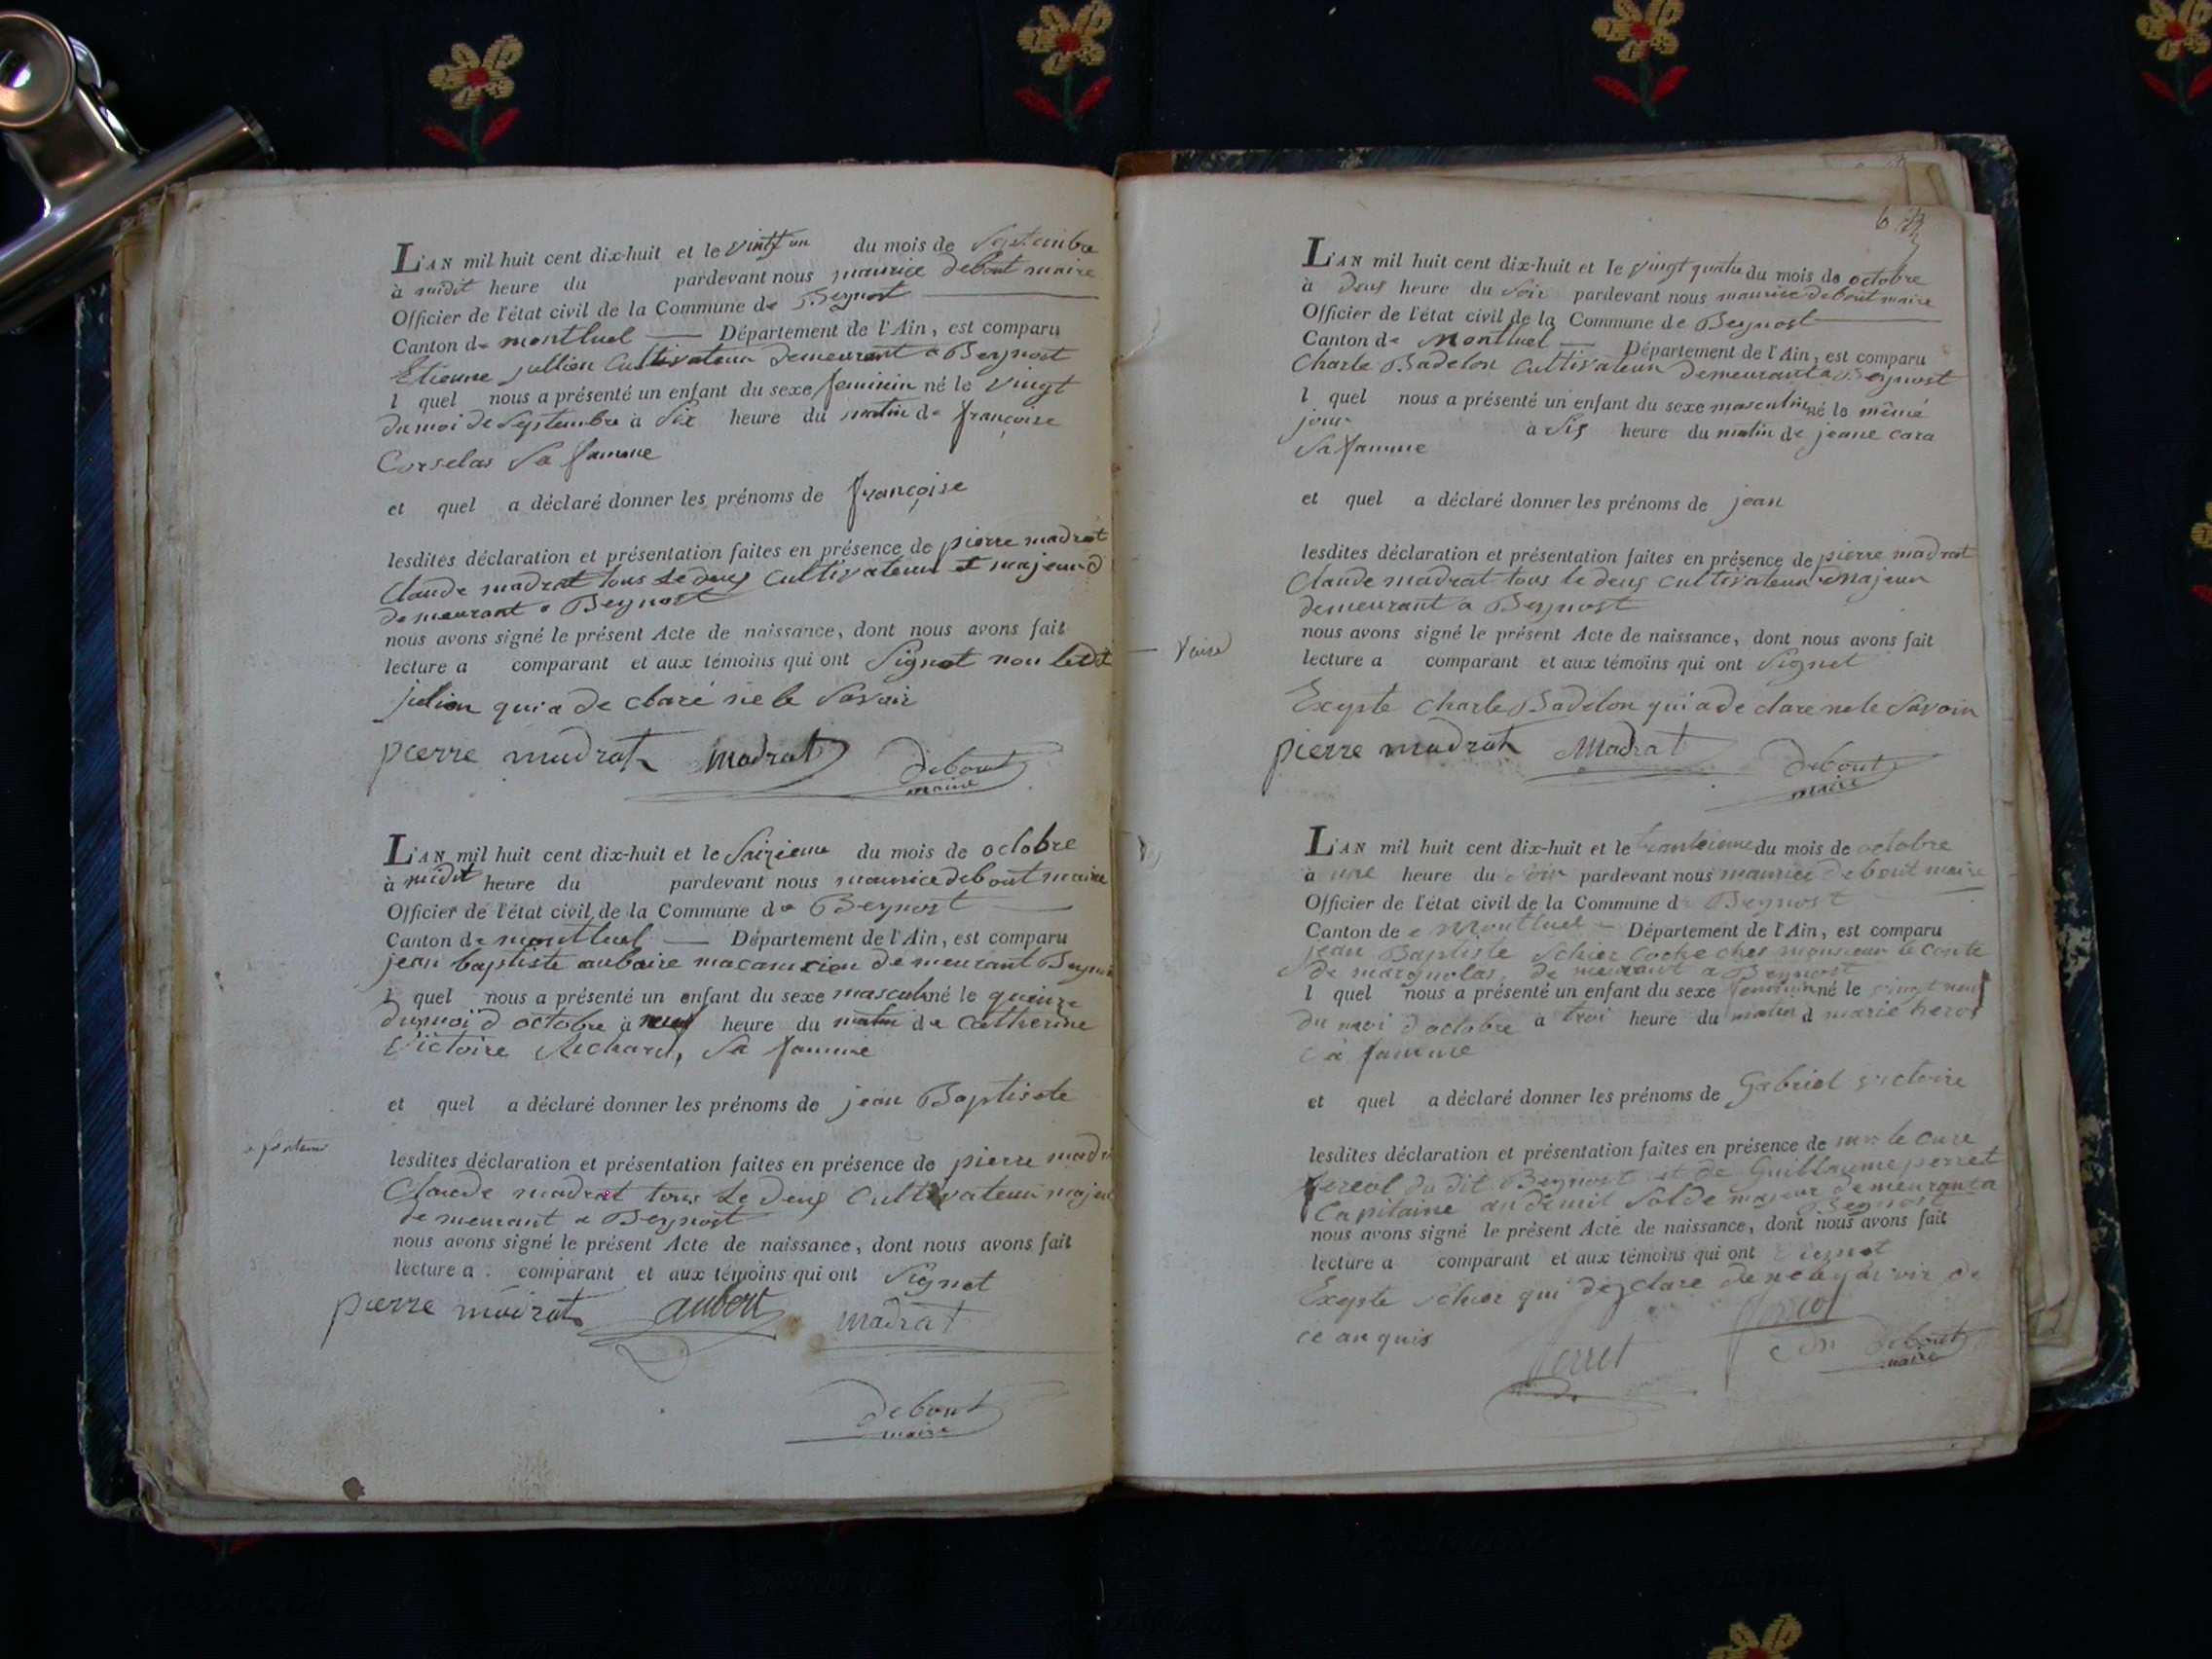 L'AN mil huit cent dix-huit et le vintt un du mois de Septembre
à midit heure du pardevant nous maurice debout maire
Officier de l'état civil de la Commune de Beynost
Canton de montluel Département de l'Ain, est comparu
Etienne jullien Cultivateur demeurant a Beynost
l quel nous a présenté un enfant du sexe feminin né le vingt
du moi de Septembre à Six heure du matin de françoise
Corselas Sa famme
et quel a déclaré donner les prénoms de françoise
lesdites déclaration et présentation faites en présence de pierre madrat
Claude madrat tous Le deus Cultivateur et majeur d
demeurant a Beynost
nous avons signé le présent Acte de naissance, dont nous avons fait
lecture a comparant et aux témoins qui ont Signet non ledit
julien qui a de claré ne le Savoir
pierre madrat madrat debout
maire
L'AN mil huit cent dix-huit et le Saizieme du mois de octobre
à midit heure du pardevant nous maurice debout maire
Officier de l'état civil de la Commune de Beynost
Canton de montluel Département de l'Ain, est comparu
jean baptiste demeurant
l quel nous a présenté un enfant du sexe masculin né le quinze
du moi d octobre à neuf heure du matin de Catherine
Victoire Richard, Sa famme
et quel a déclaré donner les prénoms de jean Baptiste
lesdites déclaration et présentation faites en présence de pierre
Claude madrat tous Le deus Cultivateur
demeurant a Beynost
nous avons signé le présent Acte de naissance, dont nous avons fait
lecture a comparant et aux témoins qui ont Signet
pierre madrat madrat
debout
maire
L'AN mil huit cent dix-huit et le vingt quatre du mois de octobre
à deus heure du Soir pardevant nous maurice debout maire
Officier de l'état civil de la Commune de Beynost
Canton de Montluel Département de l'Ain, est comparu
Charle Badelon Cultivateur demeurant a Beynost
l quel nous a présenté un enfant du sexe masculin né le même
jour à Sis heure du matin de jeane cara
Sa famme
et quel a déclaré donner les prénoms de jean
lesdites déclaration et présentation faites en présence de pierre madrat
Claude madrat tous le deus Cultivateur majeur
demeurant a Beynost
nous avons signé le présent Acte de naissance, dont nous avons fait
lecture a comparant et aux témoins qui ont Signet
Exepte Charle Badelon qui a de clare ne le Savoir
pierre madrat Madrat debout
maire
L'AN mil huit cent dix-huit et le du mois de octobre
à une heure du Soir pardevant nous maurice debout maire
Officier de l'état civil de la Commune d Beynost
Canton de Montluel Département de l'Ain, est comparu
jean Baptiste Schier Coche ches monsieur le conte
de margnolas demeurant a Beynost
l quel nous a présenté un enfant du sexe feminin né le vingt neuf
du moi d octobre à troi heure du matin d marie
Sa famme
et quel a déclaré donner les prénoms de Gabriel victoire
lesdites déclaration et présentation faites en présence de le Cure
du dit Beynost et de Guillaume perret
Capitaine Solde majeur demeurant a
Beynost
nous avons signé le présent Acte de naissance, dont nous avons fait
lecture a comparant et aux témoins qui ont Signet
Exepte Schier qui
ce
perret debout
maire